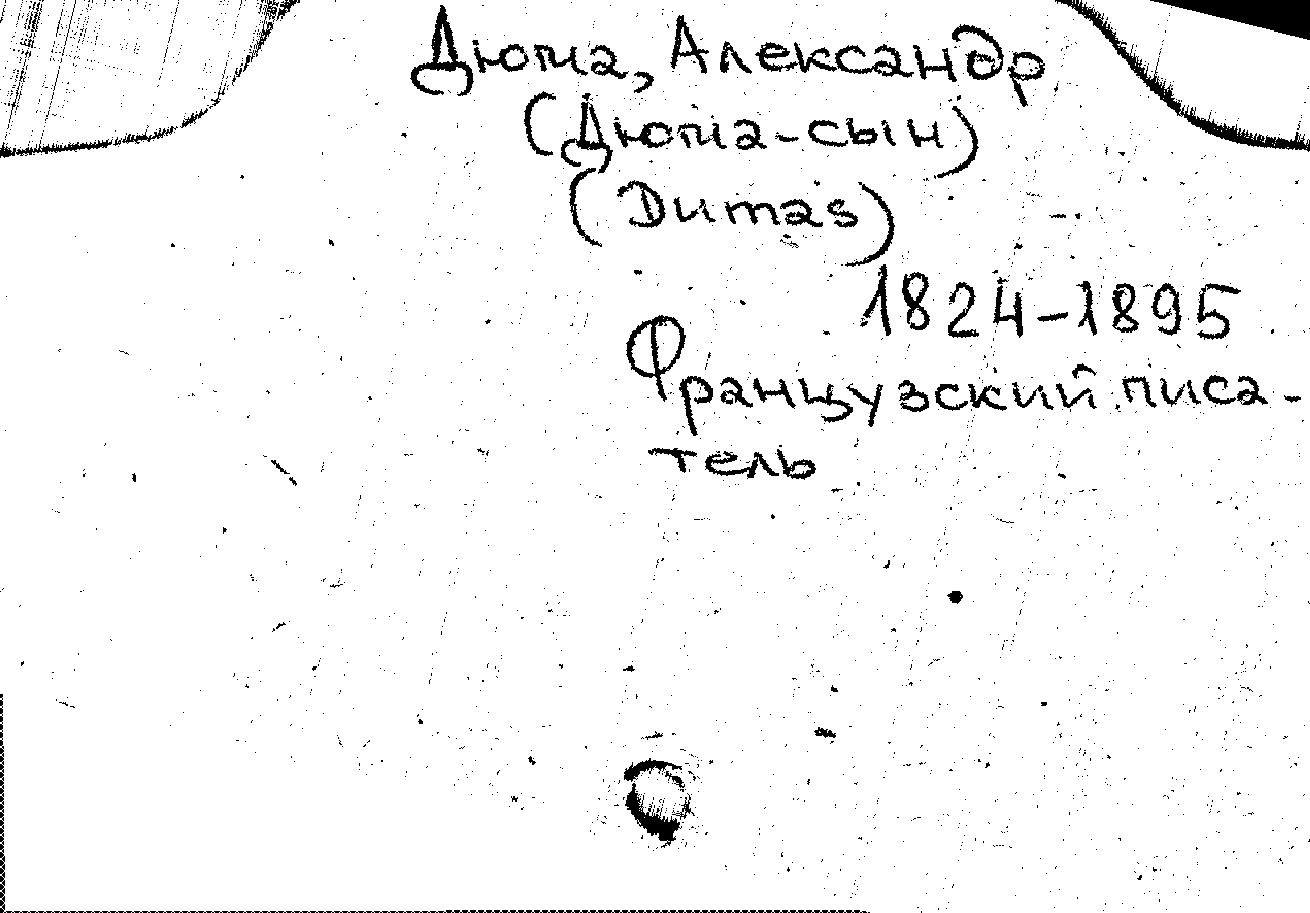 Дюма, Александр
(Дюма-сын)
(Dumas)
1824-1895
Французский писа-
тель